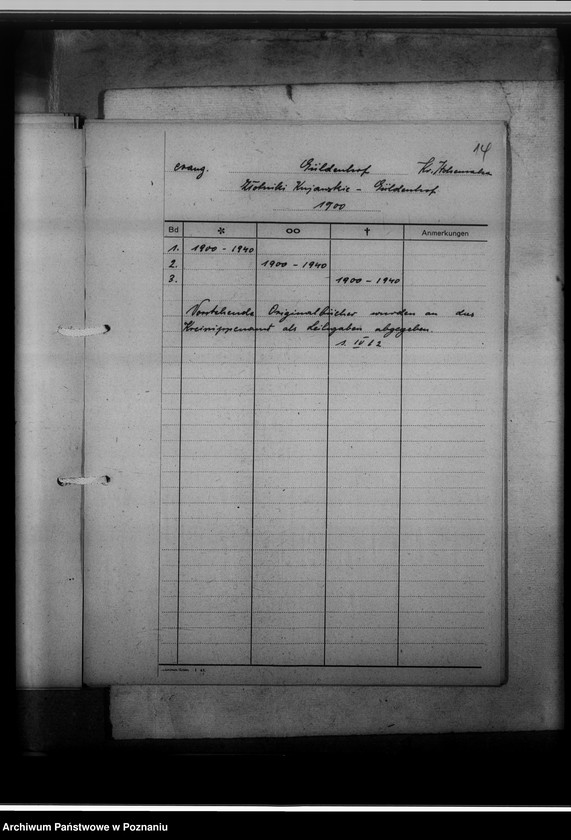 14
evang. Güldenhof Kr. Hohensalza
Złotniki Kujawskie - Güldenhof
1900
Bd * oo † Anmerkungen
1. 1900 - 1940
2. 1900 - 1940
3. 1900 - 1940
Vorstehende Originalbücher wurden an das
Kreissippenamt als Leihgaben abgegeben.
Archiwum Państwowe w Poznaniu